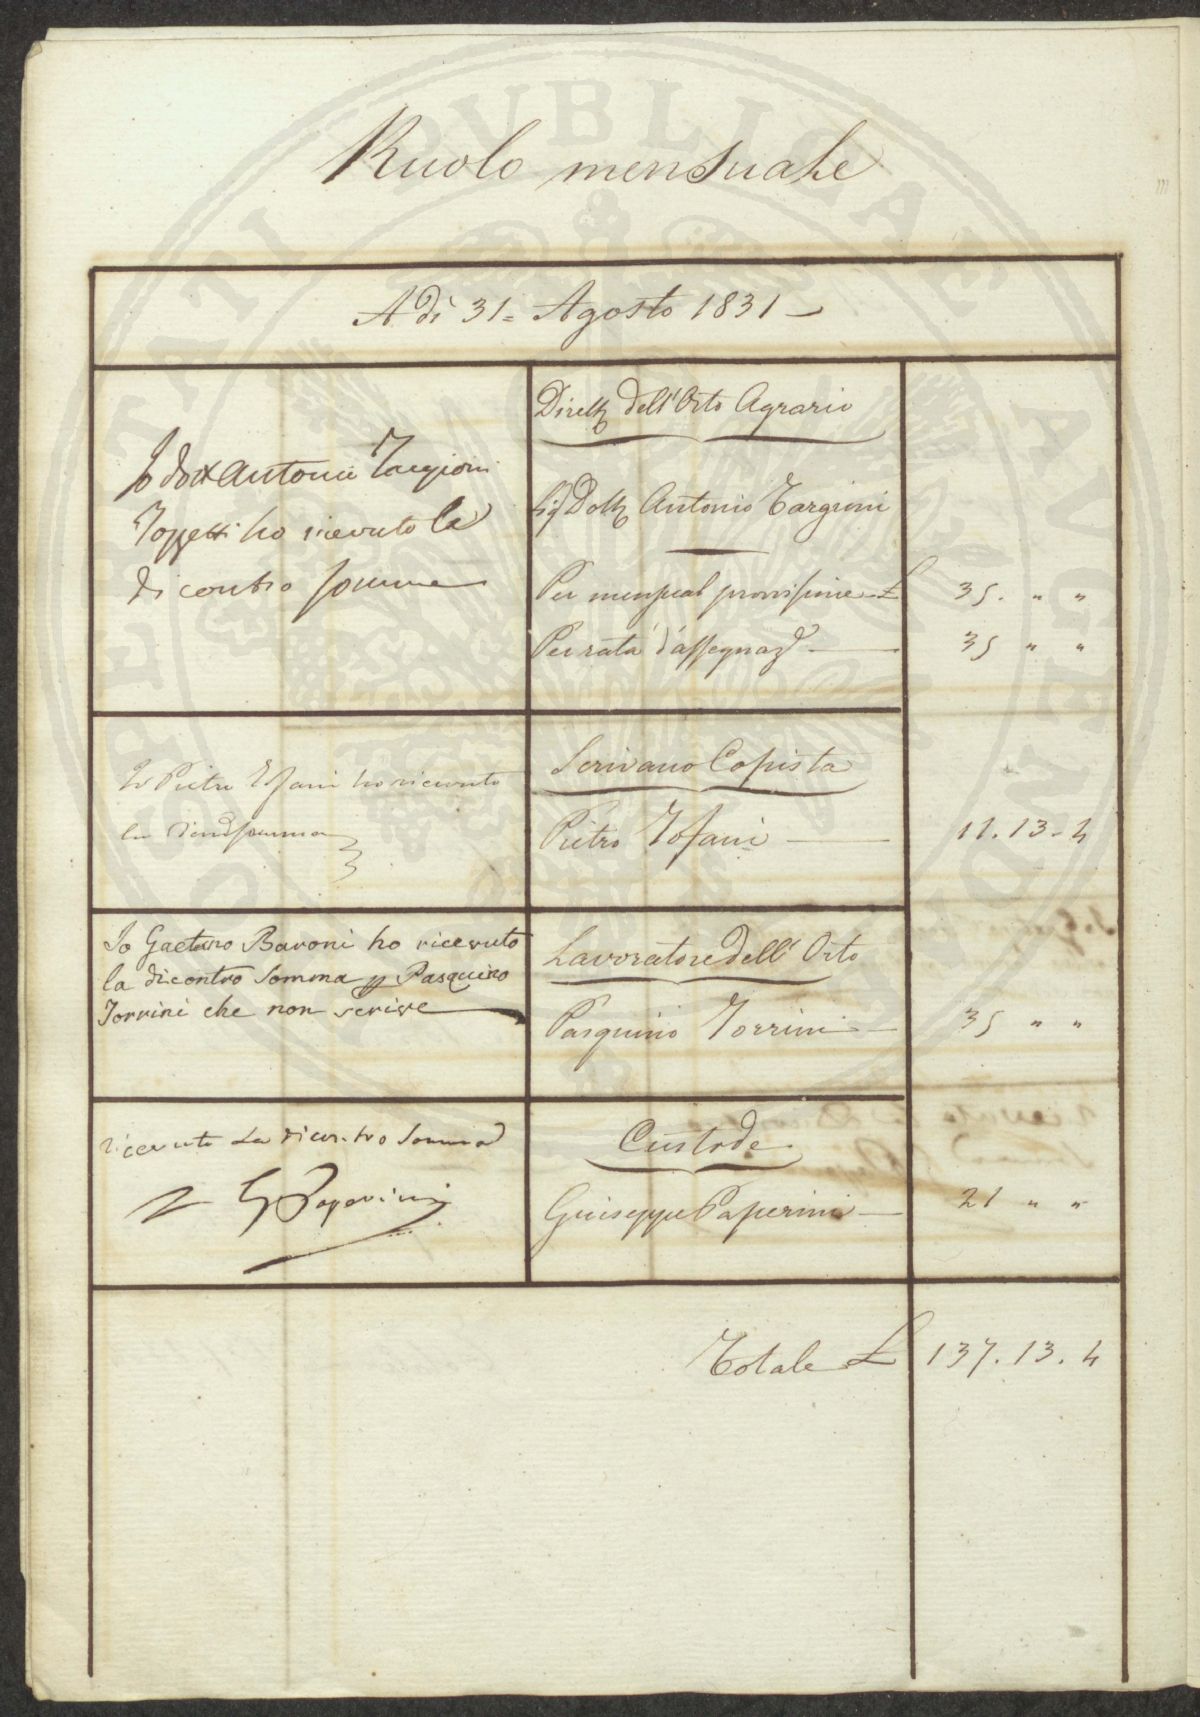 Ruolo mensuale
A dì 31= Agosto 1831
Io Dott Antonio Targioni
Tozzetti ho ricevuto la
di contro somma
Dirett dell'Orto Agrario
Sig Dott Antonio Targioni
Per mensual provisione £ 35. " "
Per rata d'assegnaz 35 " "
Io Pietro Tofani ho ricevuto
la somma
Scrivano Copista
Pietro Tofani 11.13.4
Io Gaetano Baroni ho ricevuto
la dicontro Somma p Pasquino
Torrini che non scrive
Lavoratore dell'Orto
Pasquino Torrini 35 " "
ricevuto La dicontro Somma
G Paperini
Custode
Guiseppe Paperini 21 " "
Totale £ 137.13.4